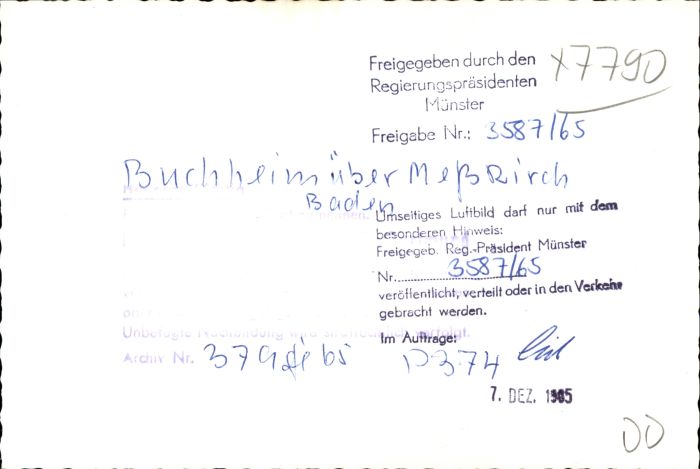 Freigegeben durch den
Regierungspräsidenten
Münster
x7790
Freigabe Nr.: 3587/65
Buchheim über Meßkirch
Baden
Umseitiges Luftbild darf nur mit dem
besonderen Hinweis:
Freigegeb. Reg.-Präsident Münster
Nr. 3587/65
veröffentlicht, verteilt oder in den Verkehr
gebracht werden.
Unbefugte Nachbildung wird strafrechtlich verfolgt.
Im Auftrage:
Archiv Nr.
374
7. DEZ. 1965